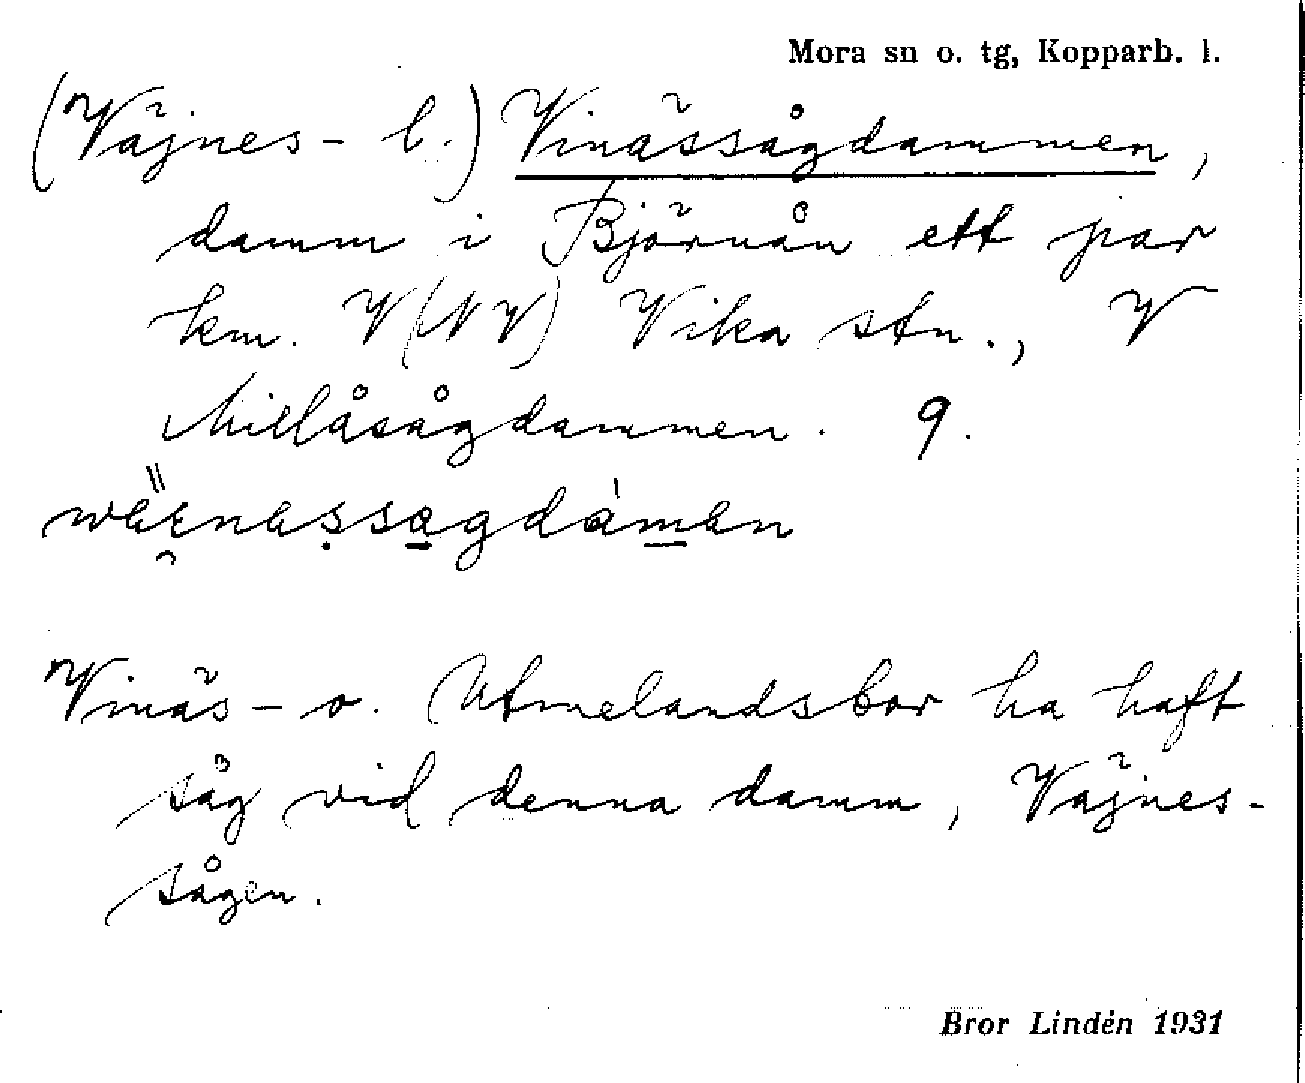 Mora sn o. tg, Kopparb. l.
(Väjnes- l.) Vinässågdammen,
damm i Björnån ett par
km. V(NV) Vika stn., V
Millåsågdammen. 9.
Vinäs- o. Utmelandsbor ha haft
såg vid denna damm, Väjnes-
sågen.
Bror Lindén 1931